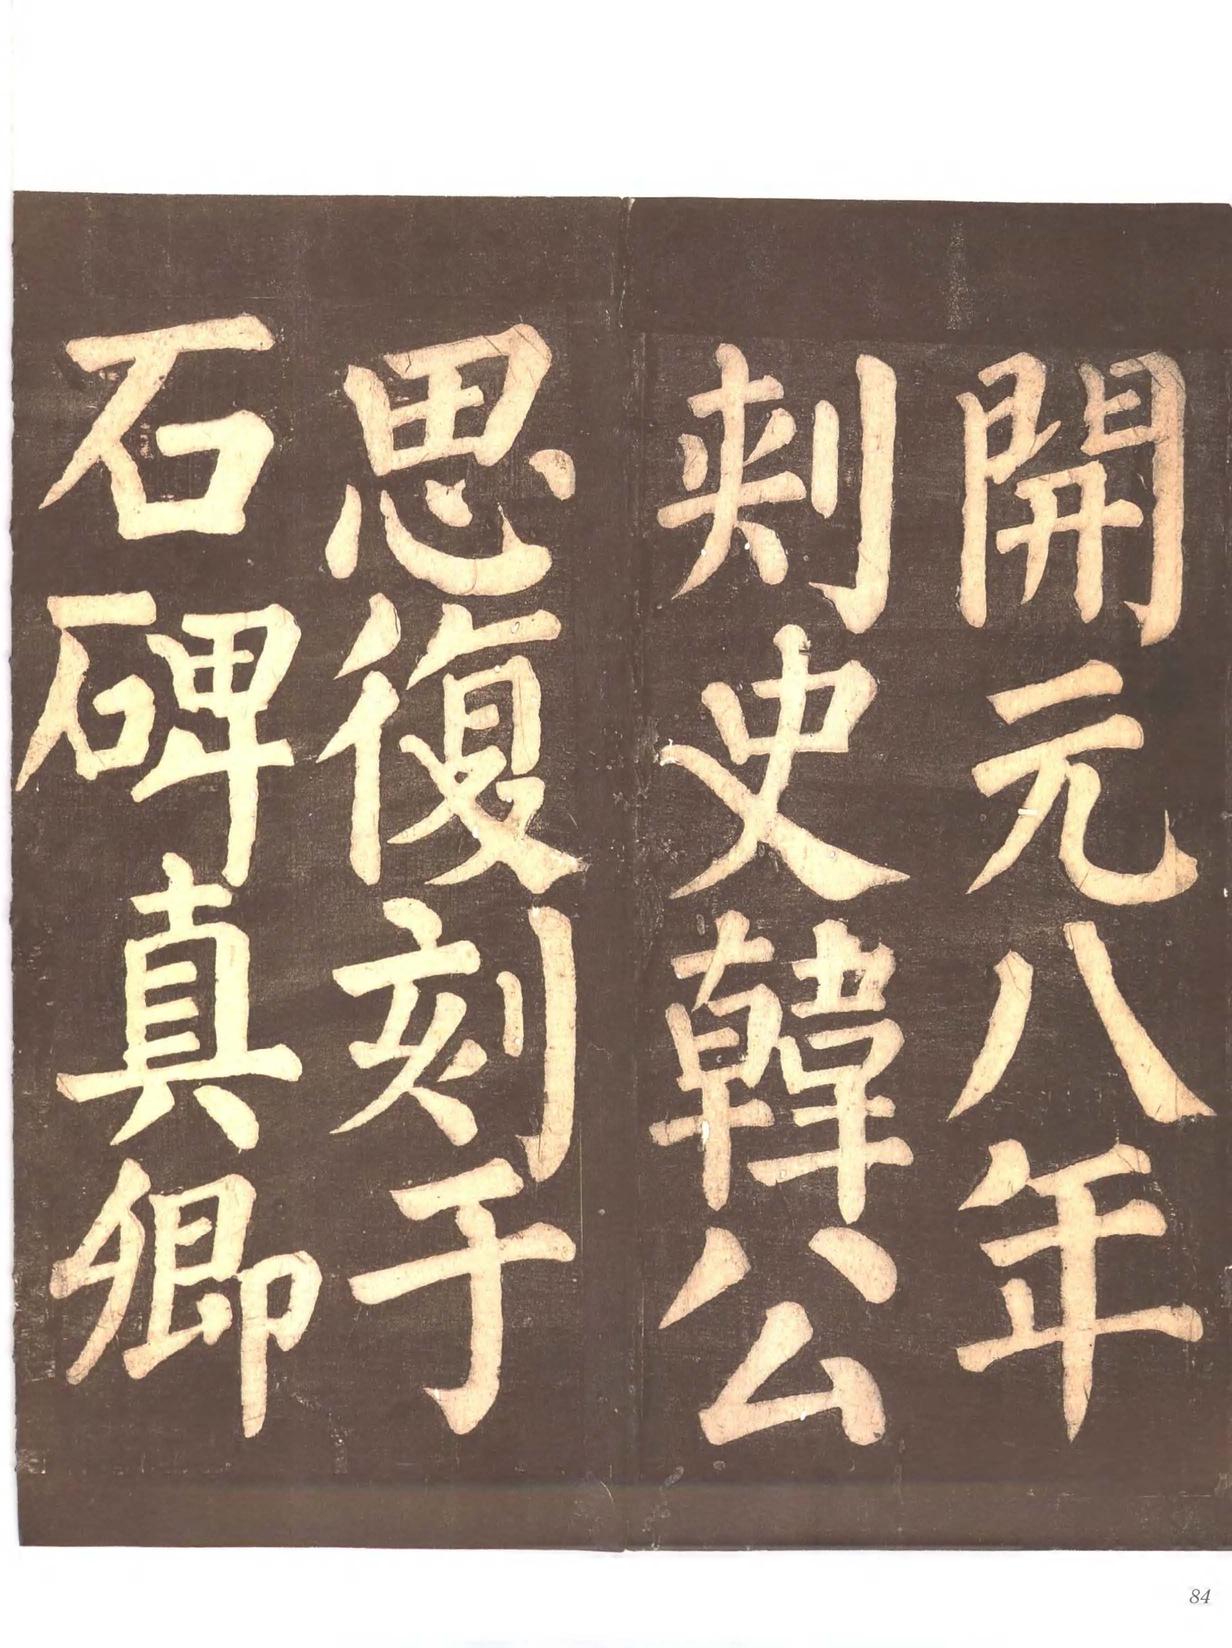 開元八年
刺史韓公
思復刻于
石碑真卿
84